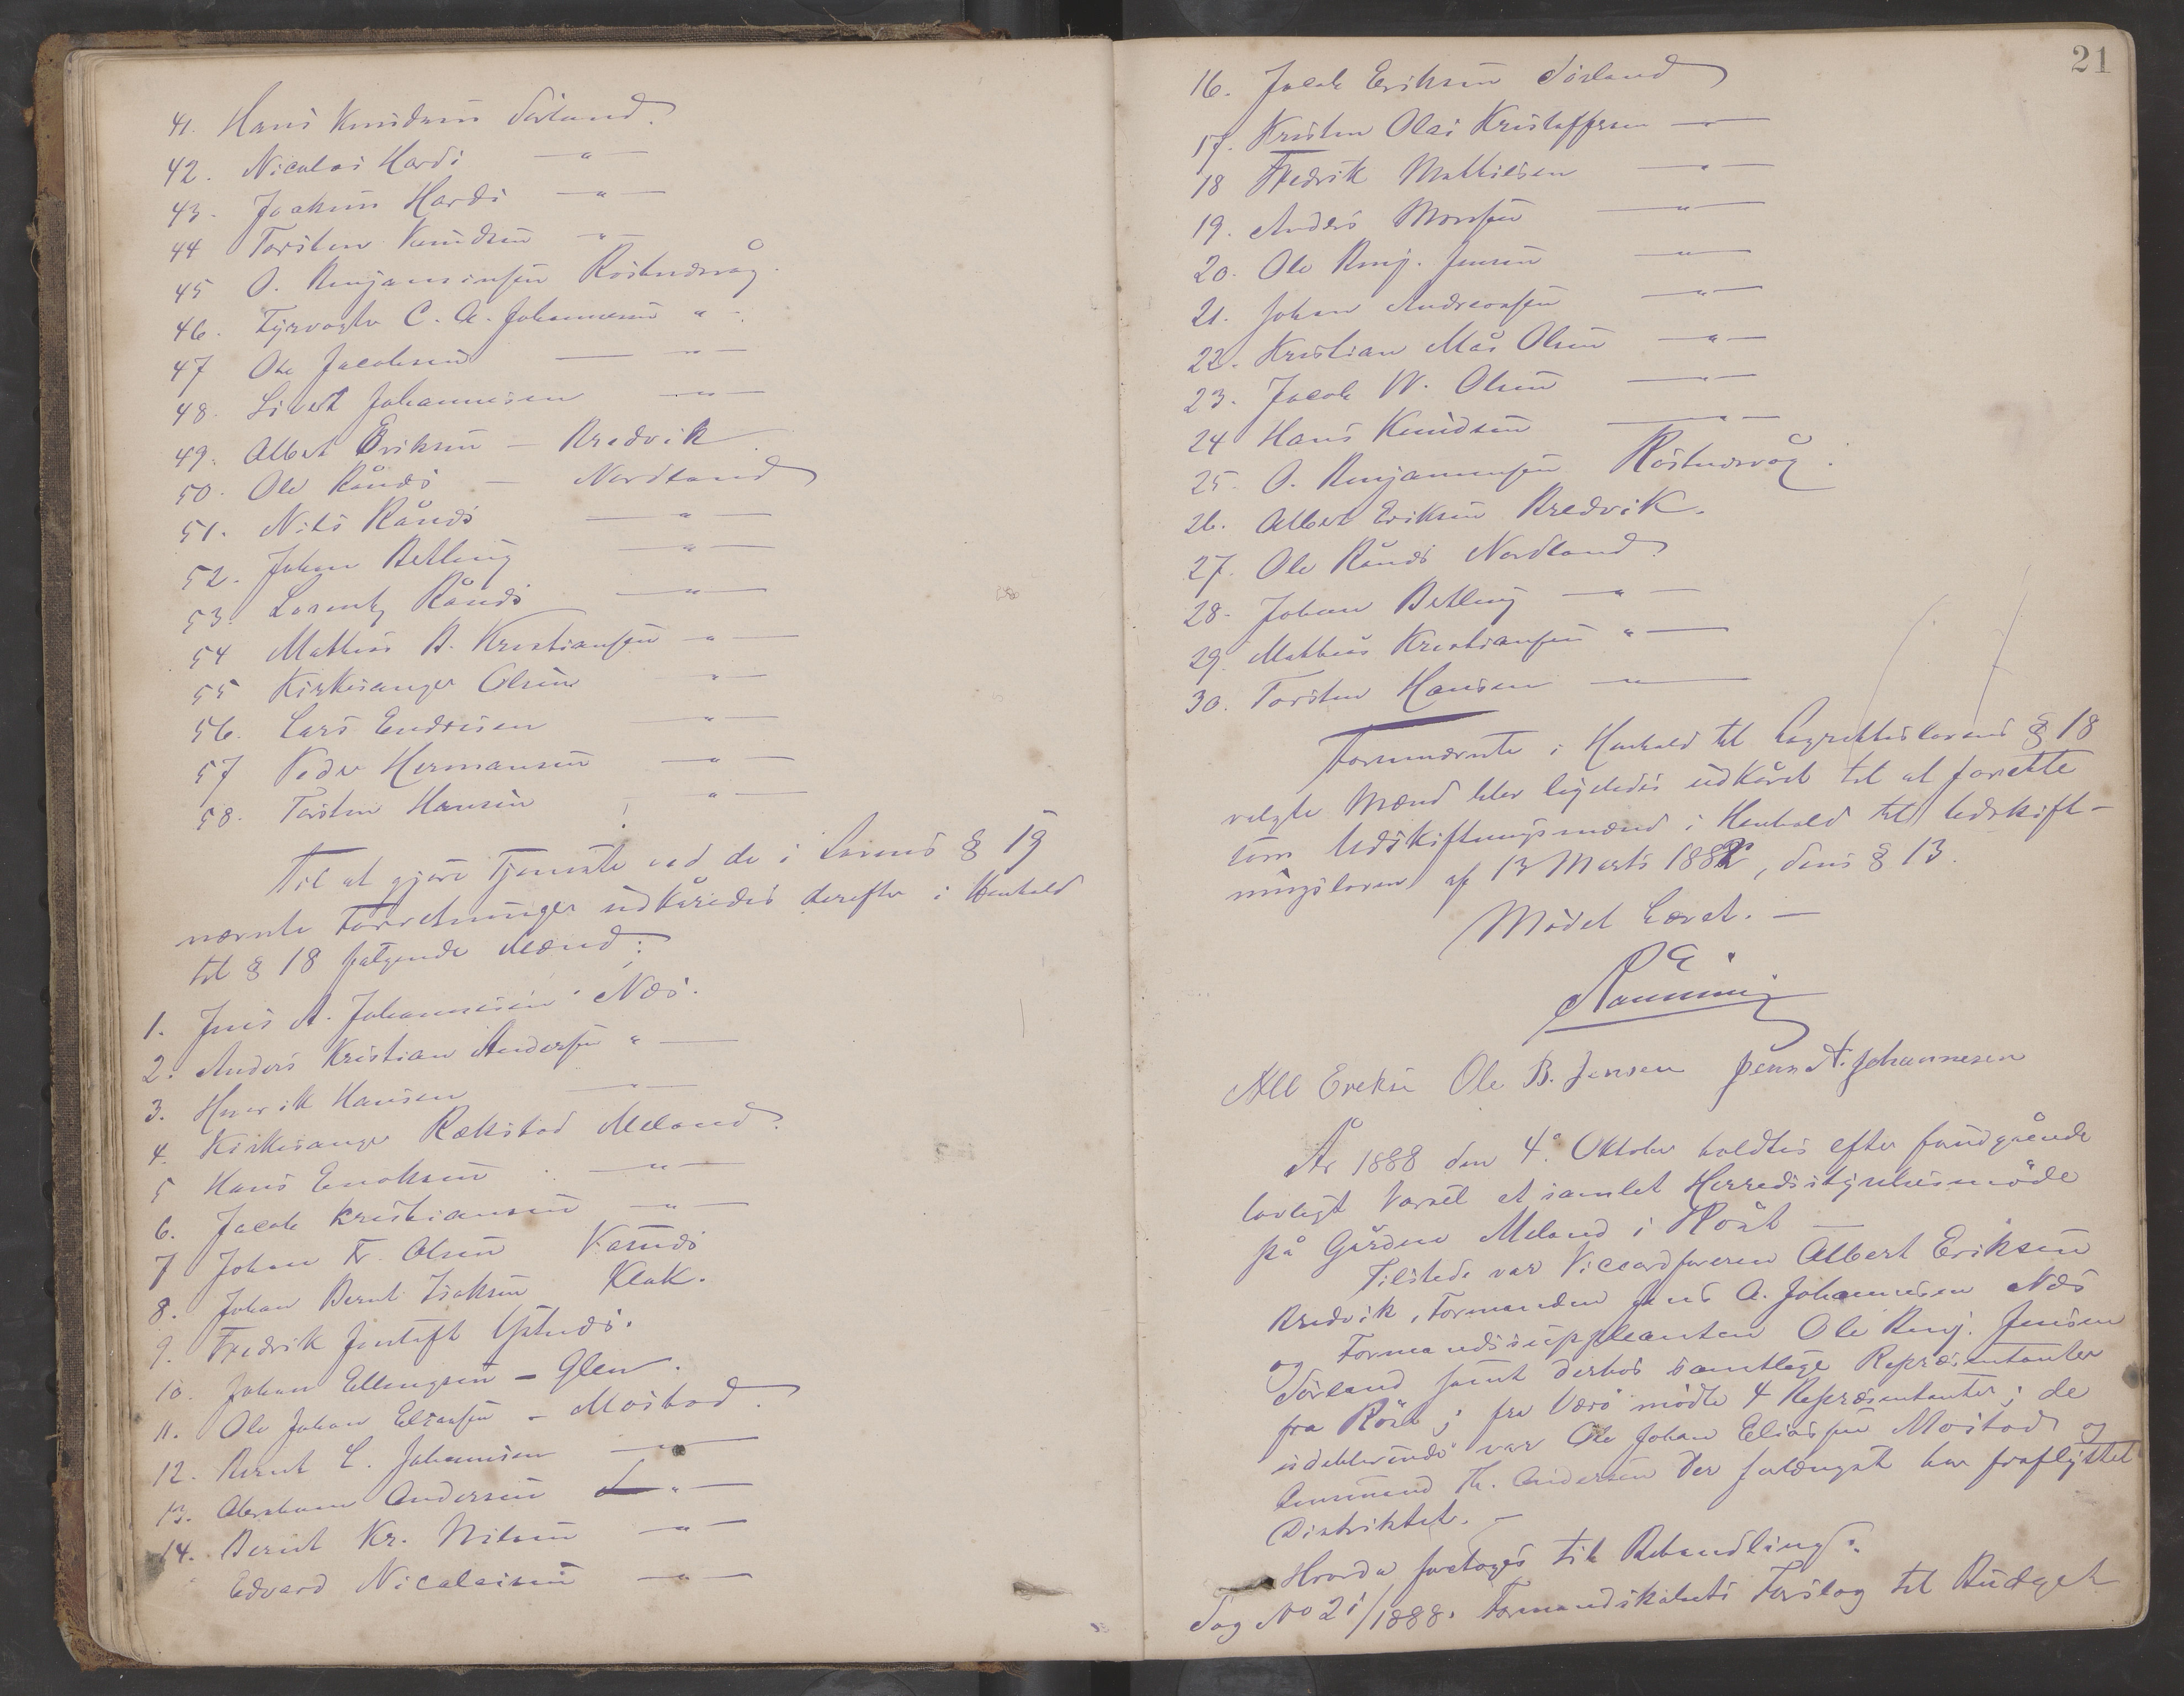 41. Hans Knudsen Sørland.
42. Nicolai Hardi —"—
43. Joakim Hardi —"—
44 Torsten Knudsen —"—
45 O. Benjaminsen Røstnesvåg.
46. Fyrvogter C. A. Johannesen " —
47 Ole Jacobsen — —"—
48. Sivert Johannesen —"—
49. Albert Eriksen — Bredvik
50. Ole Rånds — Nordland
51. Nils Rånds —"—
52. Johan Betling —"—
53. Lorentz Rånds —"—
54 Mathias B. Kristiansen "—
55 Kirkesanger Olsen —"—
56. Lars Endresen —"—
57 Peder Hermansen —"—
58. Torsten Hansen —"—
Til at gjøre Tjeneste ved de i Lovens § 19
nævnte Forretninger udkåredes derefter i Henhold
til § 18 følgende Mænd:
1. Jens A. Johannesen Næs.
2. Anders Kristian Andersen "—
3. Henrik Hansen —"—
4. Kirkesanger Rækstad Meland.
5 Hans Enoksen —"—
6. Jacob Kristiansen —"—
7 Johan Fr. Olsen
8. Johan Bernt Isaksen Klak.
9. Fredrik Jentoft Ystnes.
10. Johan Ellingsen — Glen.
11. Ole Johan Eliassen — Mostad.
12. Bernt L. Johansen —"—
13. Abraham Andersen —"—
14. Bernt Kr. Nilsen —"—
" Edvard Nicolaisen —"—
21
16. Jacob Eriksen Sørland
17. Kristen Olai Kristoffersen —"—
18 Fredrik Mathisen —"—
19. Anders Monsen —"—
20. Ole Benj. Jensen —"—
21. Johan Andreassen —"—
22. Kristian Mås Olsen —"—
23. Jacob W. Olsen —"—
24 Hans Knudsen —"—
25. O. Benjaminsen Røstnesvåg.
26. Albert Eriksen Bredvik.
27. Ole Rånds Nordland.
28. Johan Betling —"—
29. Mathias Kristiansen "—
30. Torsten Hansen —"—
Fornævnte i Henhold til Lagrettesloven § 18
valgte Mænd blev ligeledes udkåret til at forrette
som Udskiftningsmænd i Henhold til Udskift-
ningsloven af 13 Marts 1882, dens § 13.
Mødet hævet. —
Alb Erekse Ole B. Jensen Jens A. Johannesen
År 1888 den 4de Oktober holdtes efter foudgående
lovligt Varsel et samlet Herredsstyrelsesmøde
på Gården Meland i Røst —
Tilstede var Viceordføreren Albert Eriksen
Bredvik, Formanden Jens A. Johannesen Næs
og Formandssuppleanten Ole Benj. Jensen
Sørland samt derhos samtlige Repræsentanter
fra Røst; fra Værø mødte 4 Repræsentanter; de
udeblivende var Ole Johan Eliassen Mostad og
Ammund Th. Andersen der forlængst har fraflyttet
Distriktet. —
Hvorda foretoges til Behandling:
Sag No 21/1888. Formandskabets Forslag til Budget